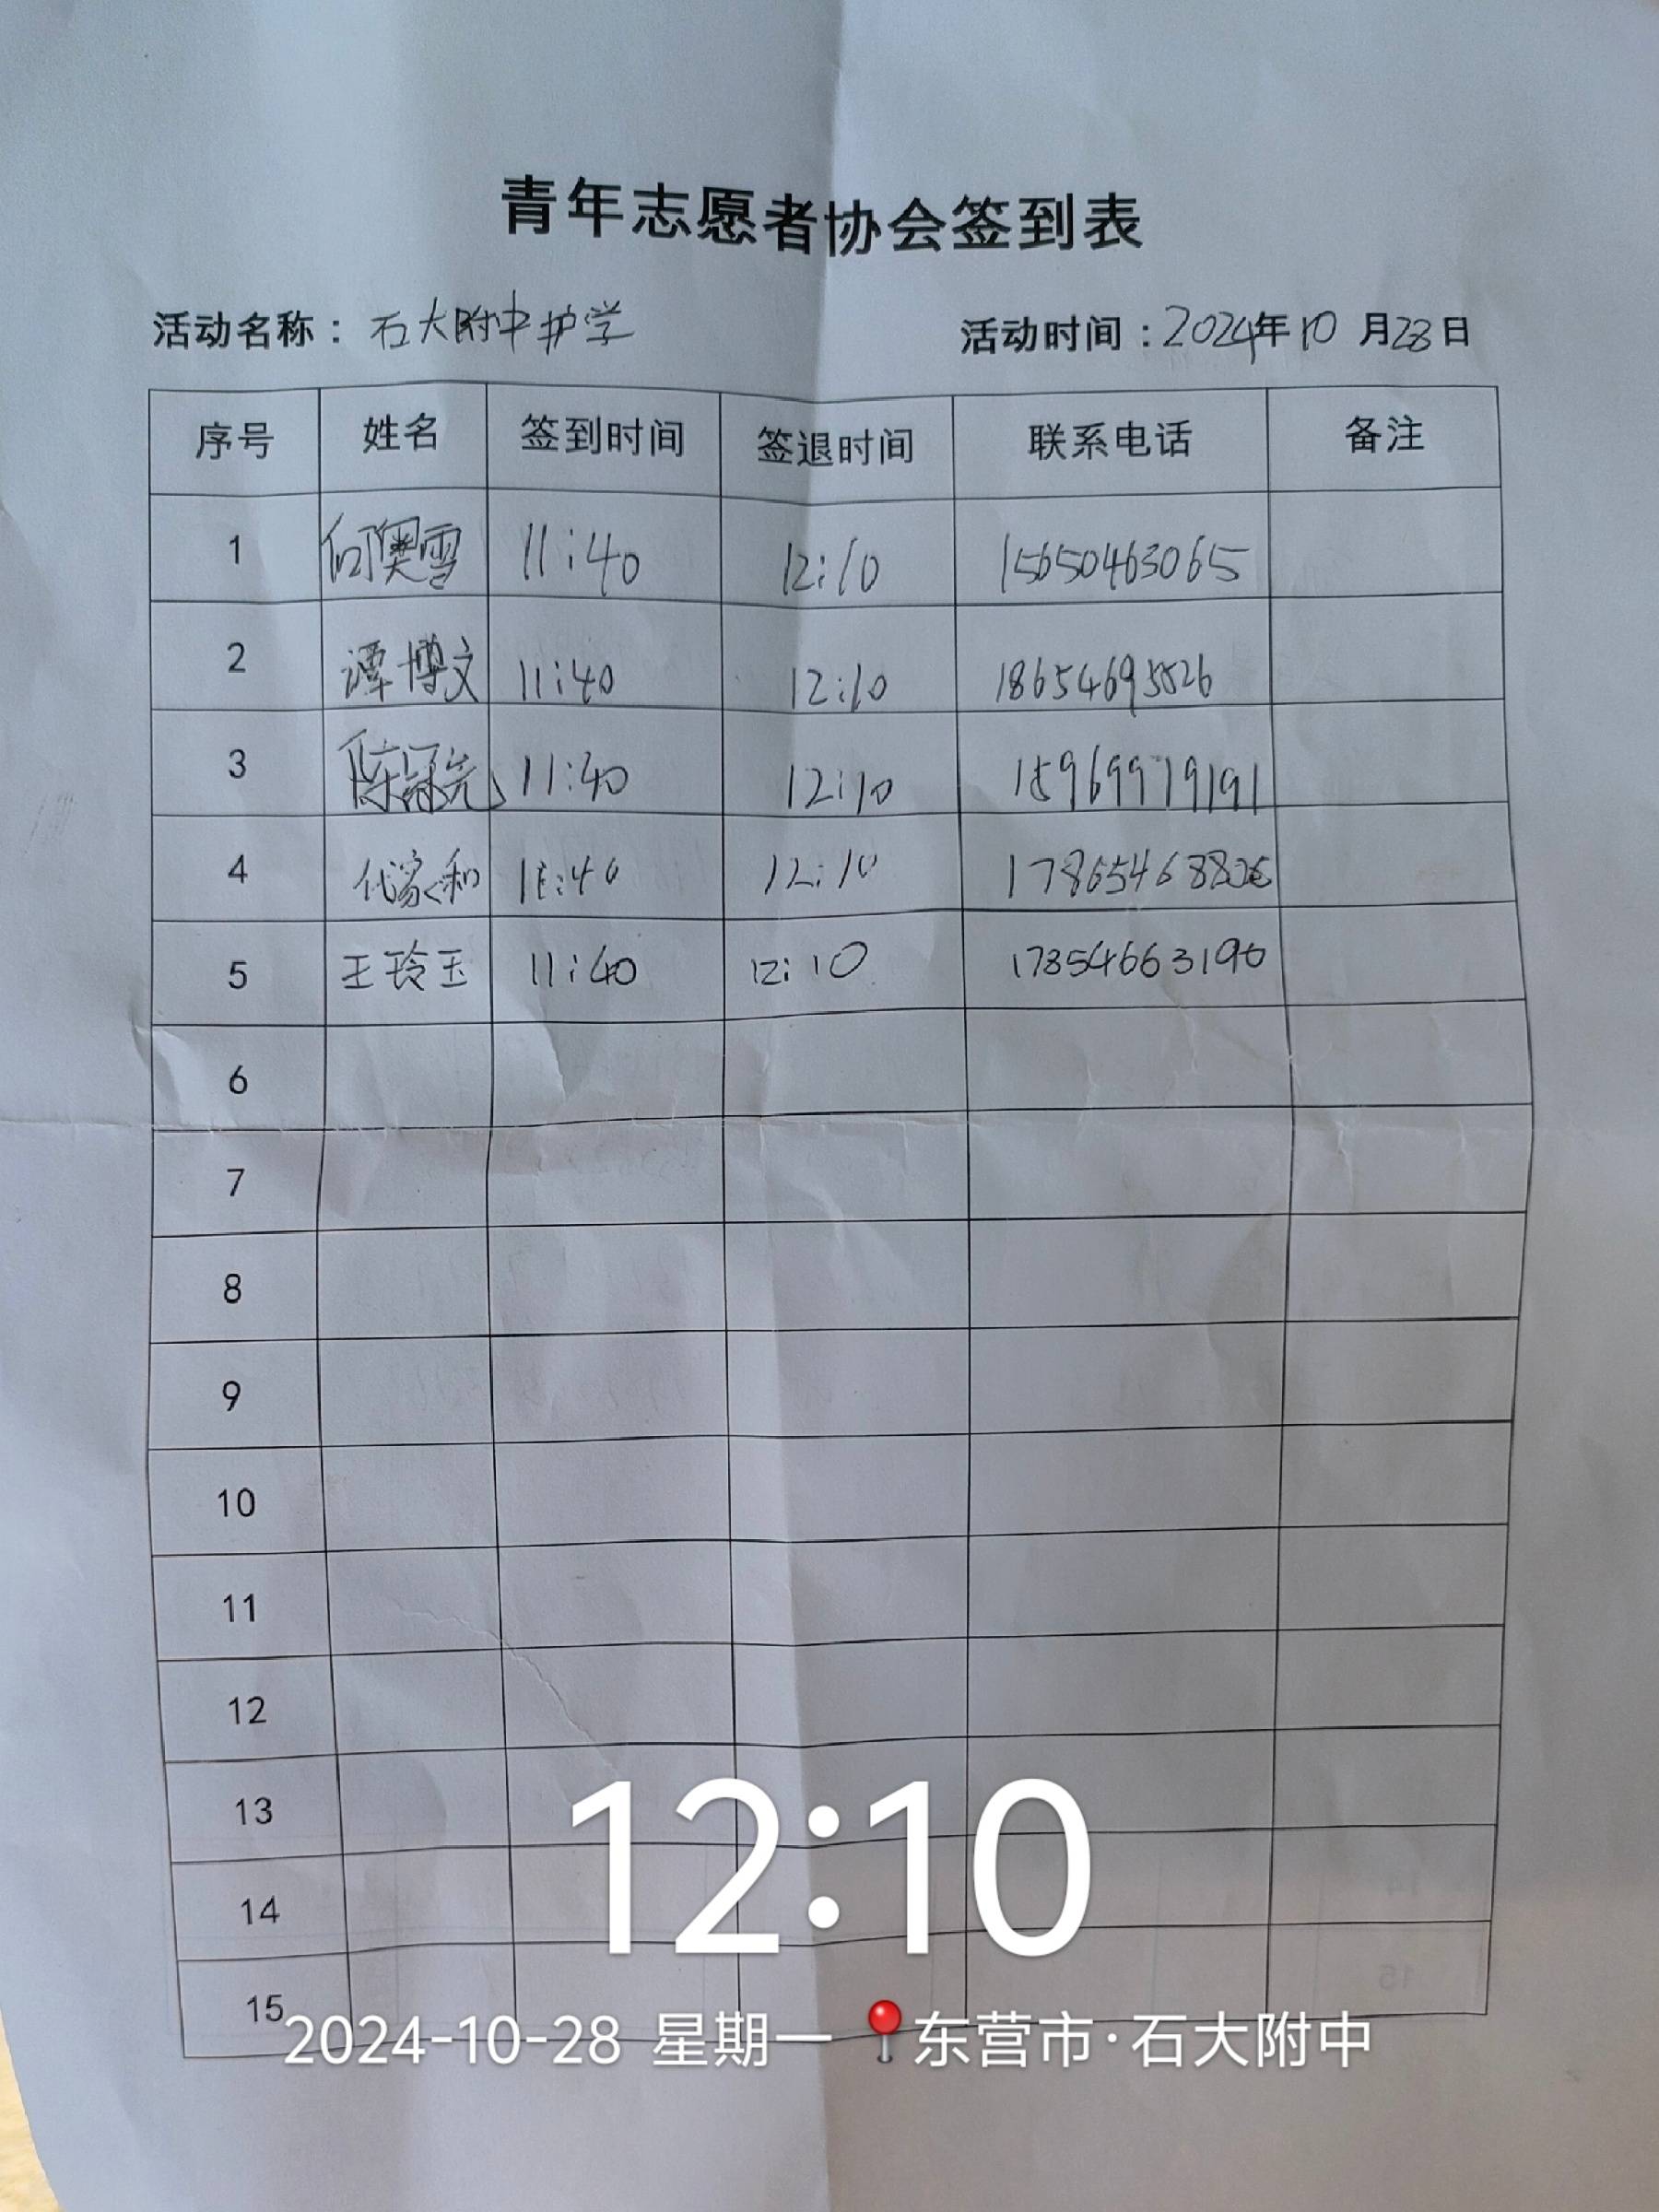 青年志愿者协会签到表
活动名称：石大附中护学 活动时间：2024年10月28日
序号 姓名 签到时间 签退时间 联系电话 备注
1 何奥雪 11:40 12:10 15650463065
2 谭博文 11:40 12:10
3 陈冠先 11:40 12:10 15969979191
4 代家和 11:40 12:10
5 王玲玉 11:40 12:10 17854663190
6
7
8
9
10
11
12
13
14
15
12:10
2024-10-28 星期一 东营市·石大附中